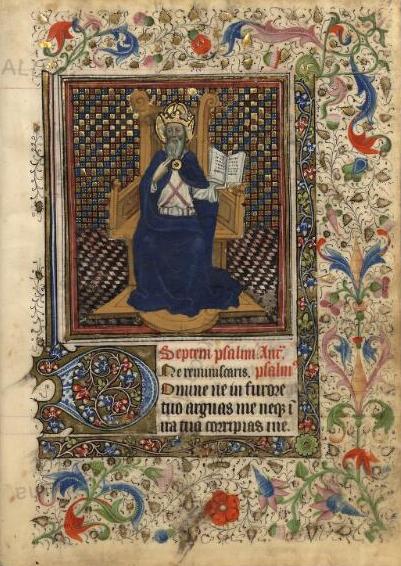 Septem psalmi Anc̄.
Ne reminiscaris. psalmꝰ
Domine ne in furore
tuo arguas me neqꝫ i
ira tua corripias me.